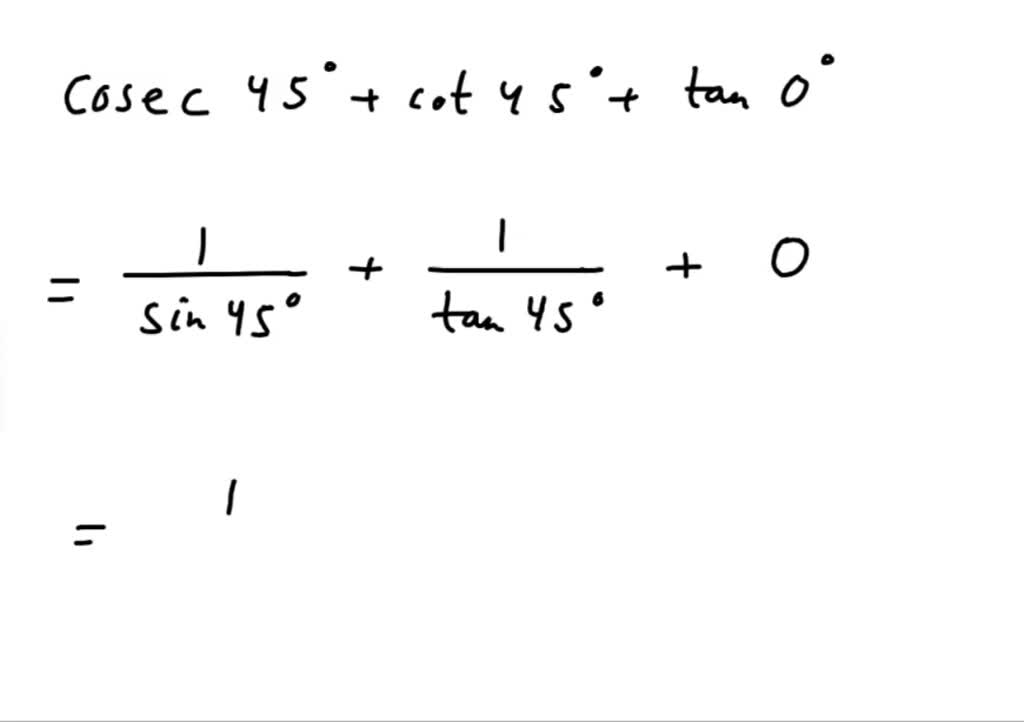 Cosec 45° + cot 45° + tan 0°
= 1/sin 45° + 1/tan 45° + 0
= 1